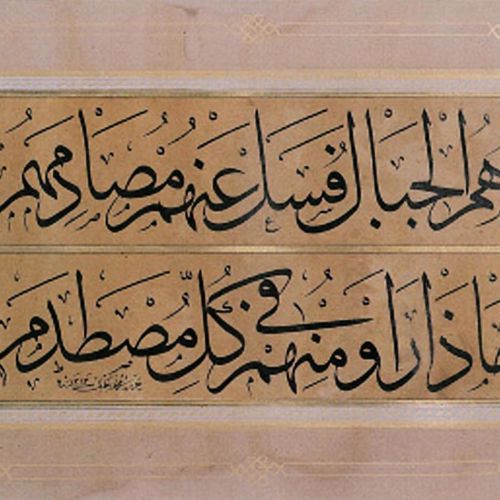 هُمُ الْجِبَالُ فَسَلْ عَنْهُمْ مُصَادِمَهُمْ
مَاذَا رَاَوْ مِنْهُمْ فِي كُلِّ مُصْطَدَمِ